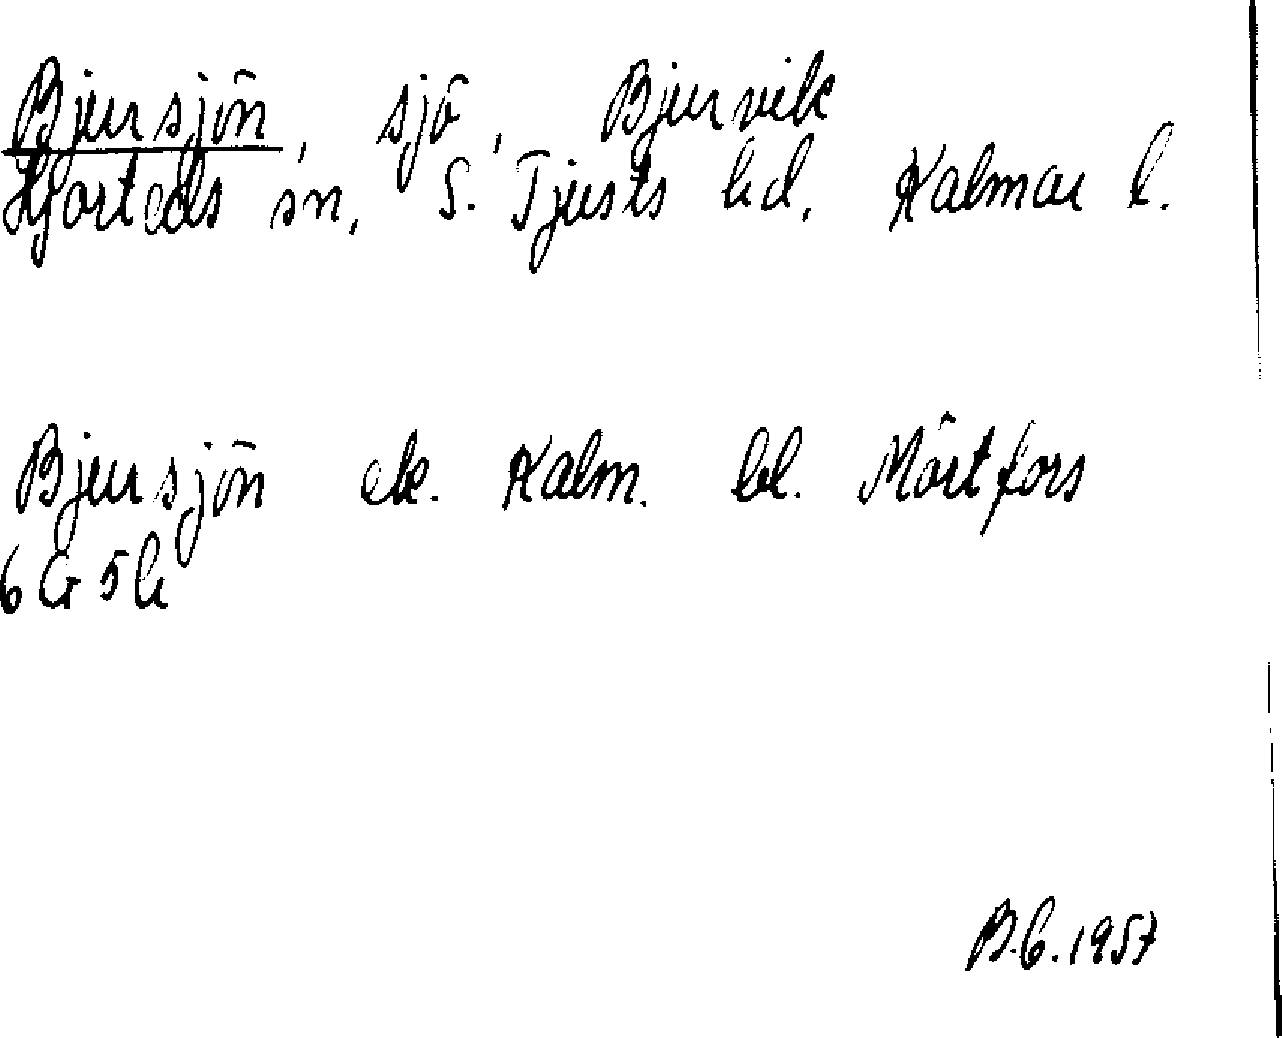 Bjursjön, sjö, Bjurvik
Hjorteds sn, S. Tjusts hd, Kalmar l.
Bjursjön ek. Kalm. bl. Mörtfors
6 G 5 h
B.C. 1957